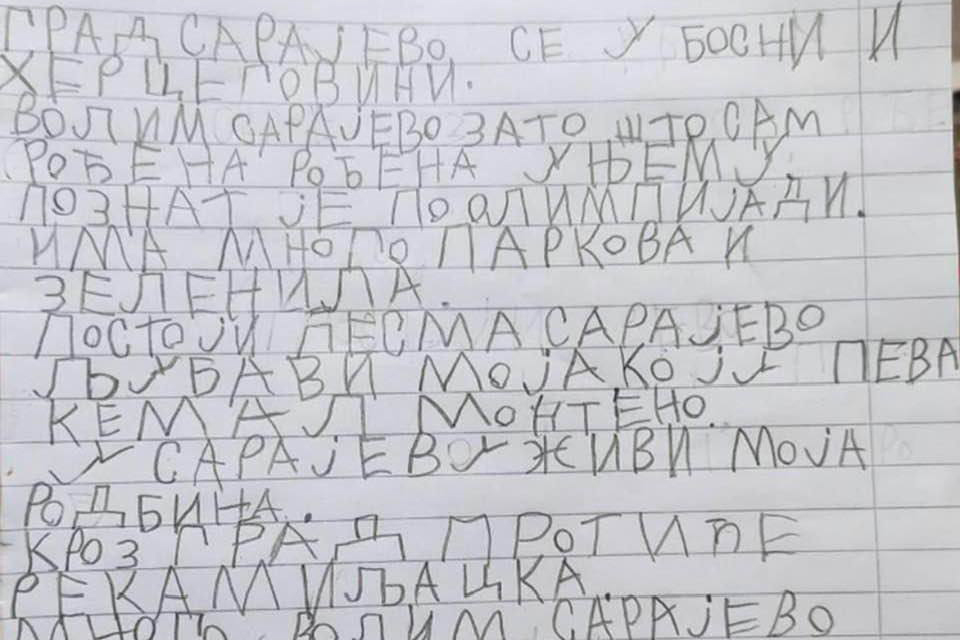 ГРАД САРАЈЕВО СЕ У БОСНИ И
ХЕРЦЕГОВИНИ.
ВОЛИМ САРАЈЕВО ЗАТО ШТО САМ
РОЂЕНА РОЂЕНА У ЊЕМУ.
ПОЗНАТ ЈЕ ПО ОЛИМПИЈАДИ.
ИМА МНОГО ПАРКОВА И
ЗЕЛЕНИЛА.
ПОСТОЈИ ПЕСМА САРАЈЕВО
ЉУБАВИ МОЈА КОЈУ ПЕВА
КЕМАЛ МОНТЕНО.
У САРАЈЕВУ ЖИВИ МОЈА
РОДБИНА.
КРОЗ ГРАД ПРОТИЋЕ
РЕКА МИЉАЦКА
МНОГО ВОЛИМ САРАЈЕВО